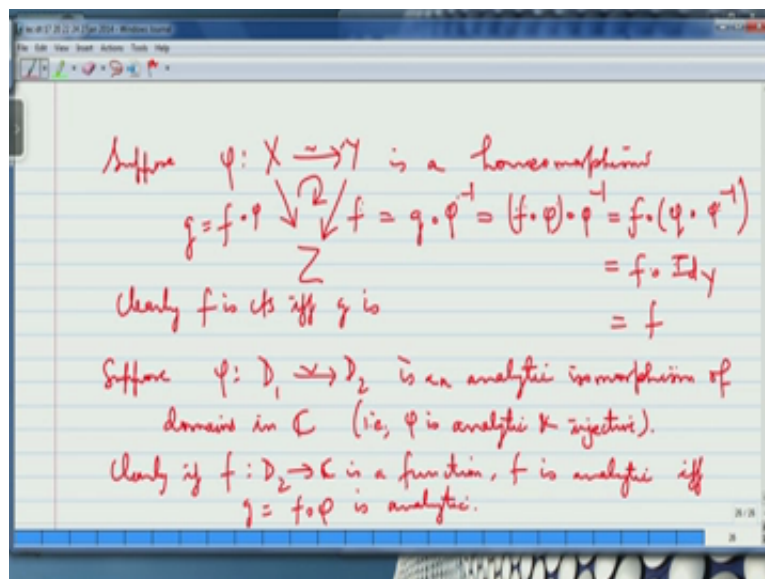 File Edit View Insert Actions Tools Help
Suppose φ: X ⥲ Y is a homeomorphism
g = f∘φ f = g∘φ⁻¹ = (f∘φ)∘φ⁻¹ = f∘(φ∘φ⁻¹)
Z = f∘Id_Y
Clearly f is cts iff g is = f
Suppose φ: D₁ ⥲ D₂ is an analytic isomorphism of
domains in ℂ (i.e., φ is analytic & injective).
Clearly if f: D₂→ℂ is a function, f is analytic iff
g = f∘φ is analytic.
26 / 26
26